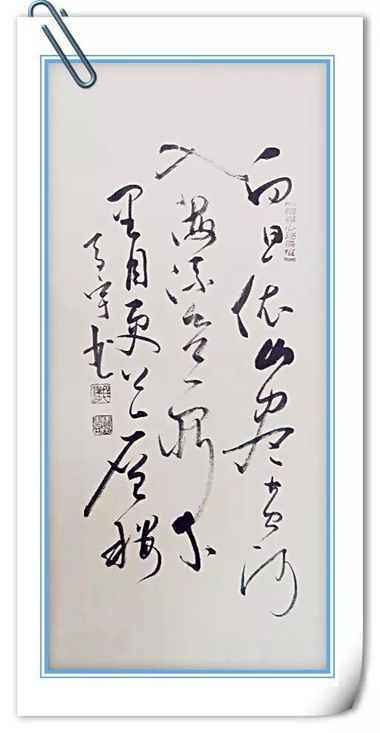 白日依山尽黄河
入海流欲窮千
里目更上一層樓
书